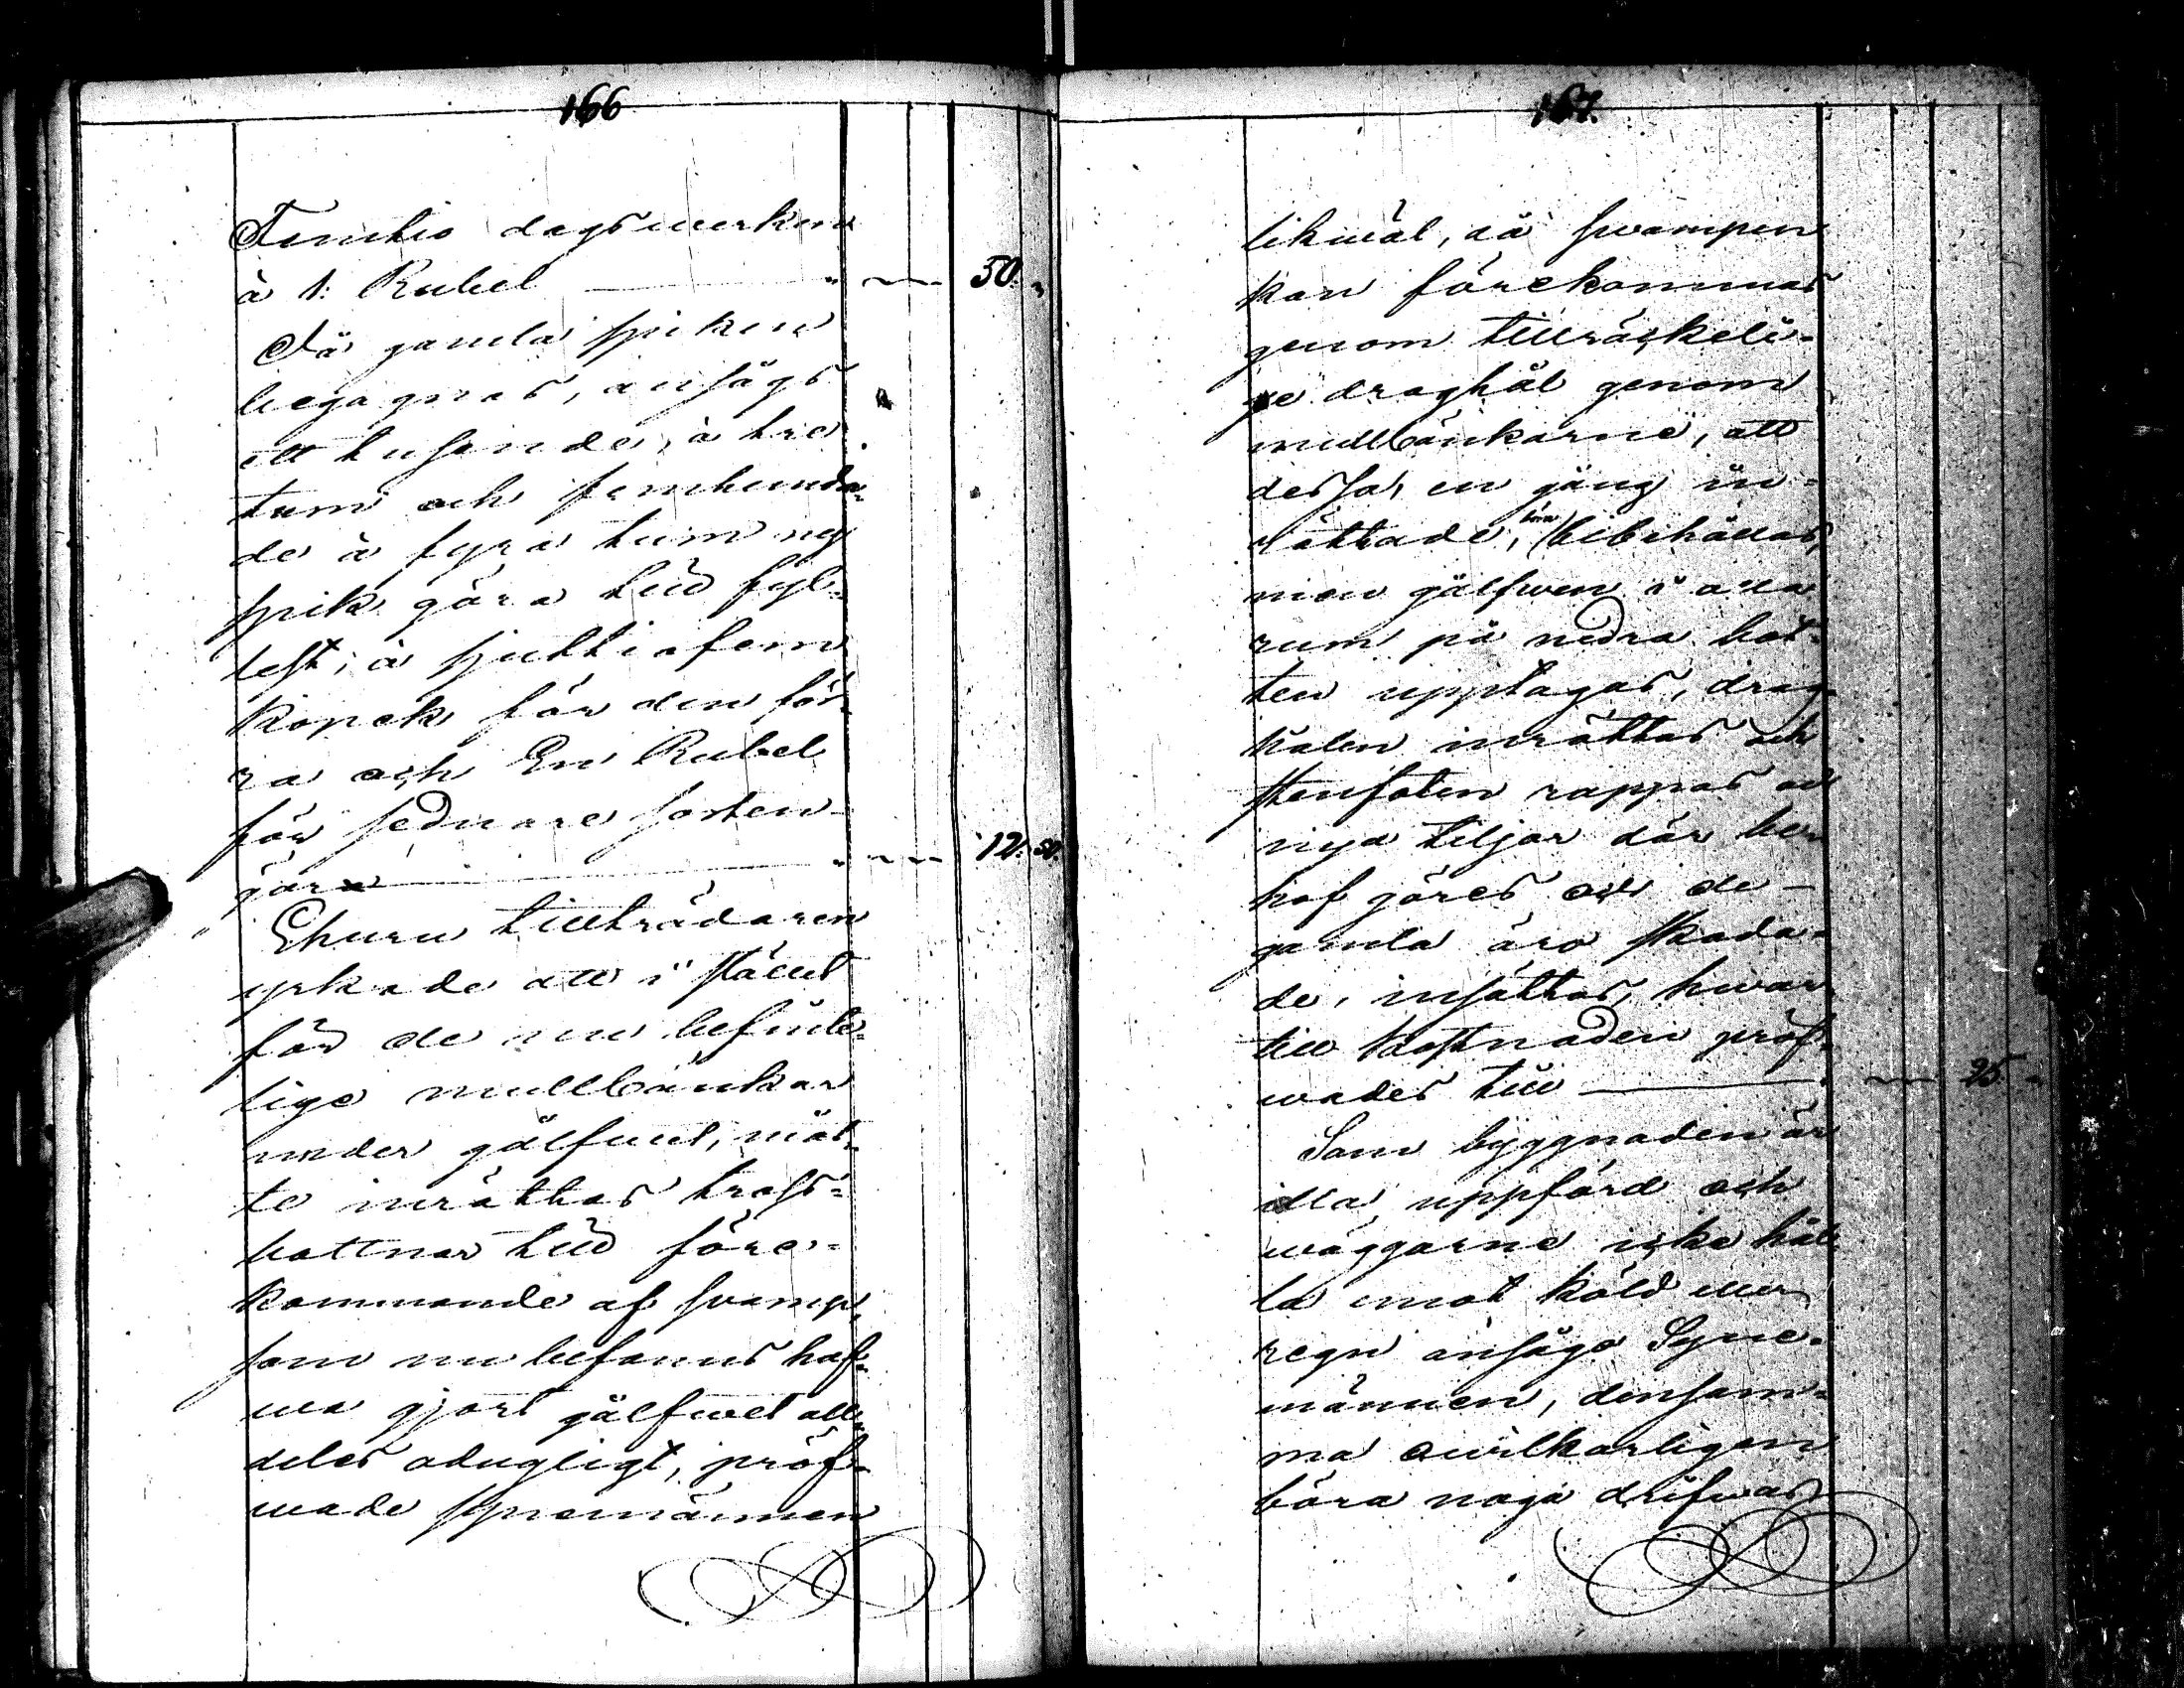 166
Femtio dagsverken
à 1: Rubel " ~ 50. "
Då gamla spiken
begagnas, ansågs
ett tusende, à tre
tum och femhundra-
de à fyra tum ny
spik göra till fyl-
lest; à sjuttiofem
kopek för den för-
ra och En Rubel
för sednare sorten
göra " ~ 12. 50.
Ehuru tillträdaren
yrkade att i stället
för de nu befint-
lige mullbänkar
under gålfwet, måt-
te inrättas tross-
bottnar till före-
kommande af svamp,
som nu befanns haf-
wa gjort gålfwet all-
deles odugligt, pröf-
wade synemännen
167.
likwäl, då svampen
kan förekommas
genom tillräckeli-
ge draghål genom
mullbänkarne, att
dessa, en gång in-
rättade, böra bibehållas,
men gålfwen i alla
rum på nedra bot-
ten upptagas, drag-
hålen inrättas och
stenfoten rappas och
nya tiljor där be-
hof göres och de
gamla äro skada-
de, insättas, hwar-
till kostnaden pröf-
wades till " ~ 25. "
Som byggnaden är
illa uppförd och
wäggarne icke hål-
la emot köld eller
regn ansågo Syne-
männen, densam-
ma owilkorligen
böra noga drifwas